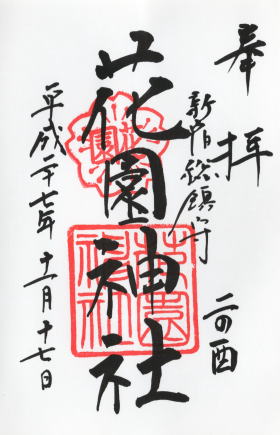 奉拝
新宿総鎮守
二の酉
花園神社
花園神社
平成二十七年十一月十七日